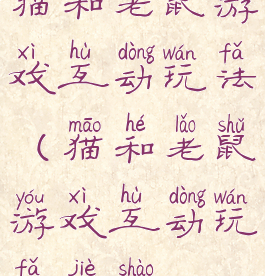 猫和老鼠游
xì hù dòng wán fǎ
戏互动玩法
māo hé lǎo shǔ
(猫和老鼠
yóu xì hù dòng wán
游戏互动玩
fǎ jiè shào